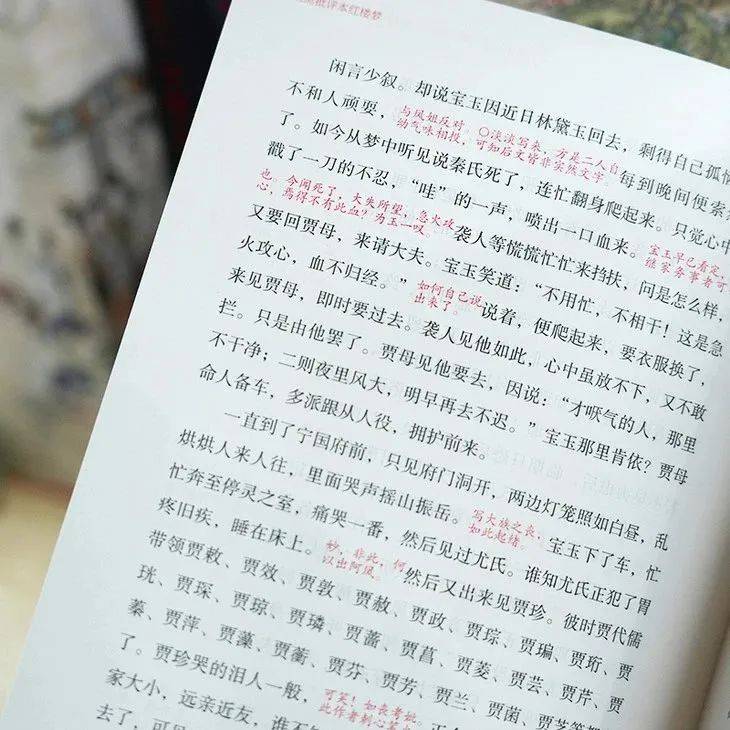 批评本红楼梦
闲言少叙。却说宝玉因近日林黛玉回去，剩得自己孤
不和人顽耍，与凤姐反对，○淡淡写来，方是二人自
动气味相投，可知后文皆非实然文字。每到晚间便索
了。如今从梦中听见说秦氏死了，连忙翻身爬起来。只觉心中
戳了一刀的不忍，“哇”的一声，喷出一口血来。宝玉早已看定，
继家务事者可
也。今闻死了，大失所望，急火攻
心，焉得不有此血？为玉一叹 袭人等慌慌忙忙来搀扶，问是怎么样，
又要回贾母，来请大夫。宝玉笑道：“不用忙，不相干！这是急
火攻心，血不归经。”如何自己说
出来了。说着，便爬起来，要衣服换了，
来见贾母，即时要过去。袭人见他如此，心中虽放不下，又不敢
拦。只是由他罢了。贾母见他要去，因说：“才咽气的人，那里
不干净；二则夜里风大，明早再去不迟。”宝玉那里肯依？贾母
命人备车，多派跟从人役，拥护前来。
一直到了宁国府前，只见府门洞开，两边灯笼照如白昼，乱
烘烘人来人往，里面哭声摇山振岳。写大族之丧，
如此起绪。宝玉下了车，忙
忙奔至停灵之室，痛哭一番，然后见过尤氏。谁知尤氏正犯了胃
疼旧疾，睡在床上。妙，非此，何
以出阿凤。然后又出来见贾珍。彼时贾代儒
带领贾敕、贾效、贾敦、贾赦、贾政、贾琮、贾㻞、贾珩、贾
珖、贾琛、贾琼、贾璘、贾蔷、贾菖、贾菱、贾芸、贾芹、贾
蓁、贾萍、贾藻、贾蘅、贾芬、贾芳、贾兰、贾菌、贾芝等都
了。贾珍哭的泪人一般，可笑！如丧考妣，
此作者刺心笔
家大小，远亲近友，谁不
去了，可见